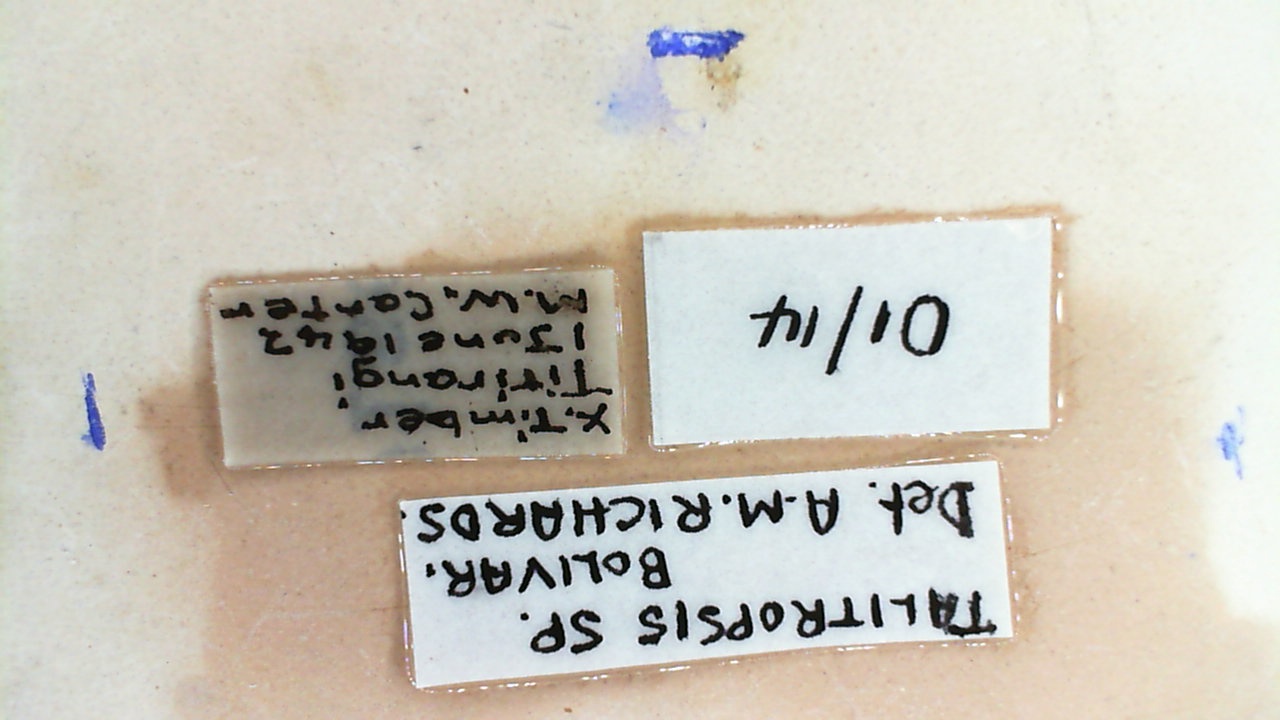 TALITROPSIS SP.
BOLIVAR.
Det. A.M.RICHARDS.
01/14
X.Timber
Titirangi
1 June 1942
M.W. Canter